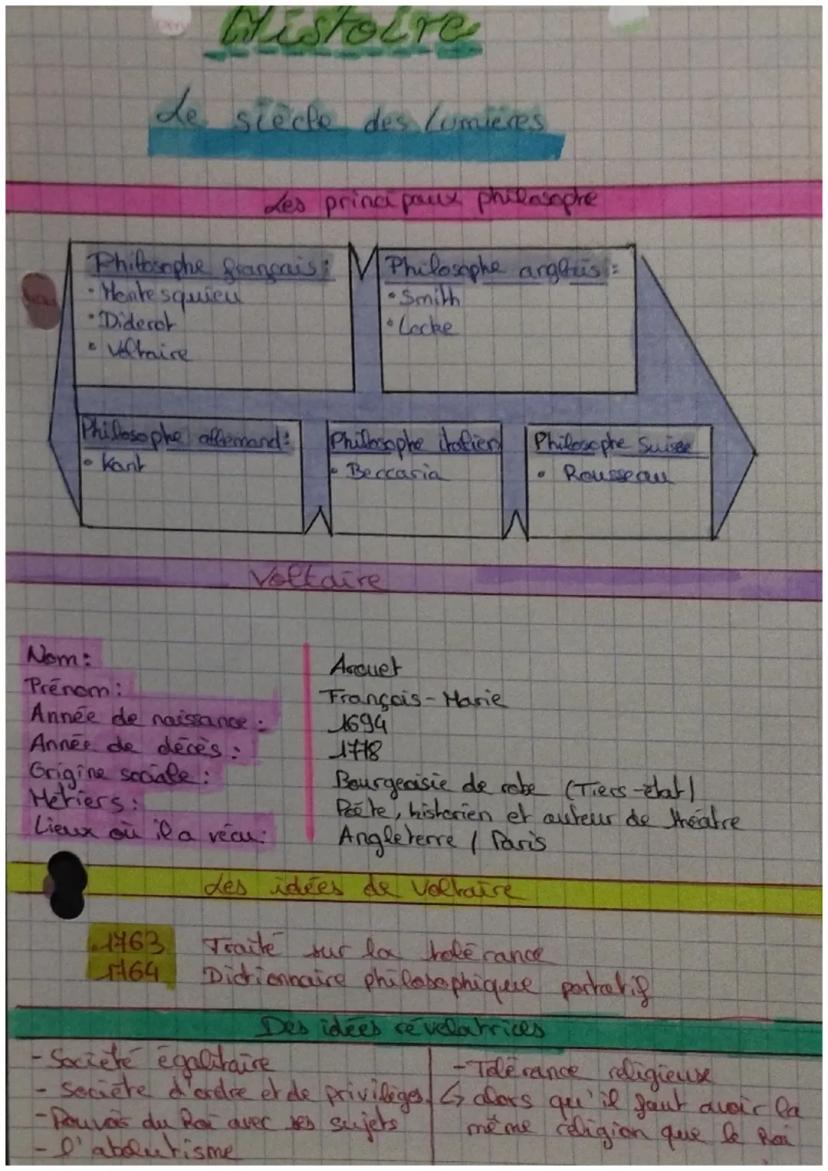 Histoire
Le siècle des Lumières
Les principaux philosophe
Philosophe français :
• Montesquieu
• Diderot
• Voltaire
Philosophe anglais :
• Smith
• Locke
Philosophe allemand :
• Kant
Philosophe italien
• Beccaria
Philosophe Suisse
• Rousseau
Voltaire
Nom : Arouet
Prénom : François-Marie
Année de naissance : 1694
Année de décès : 1778
Origine sociale : Bourgeoisie de robe (Tiers-état)
Métiers : Poète, historien et auteur de théatre
Lieux où il a vécu : Angleterre / Paris
Les idées de Voltaire
1763 Traité sur la tolérance
1764 Dictionnaire philosophique portatif
Des idées révelatrices
- Société égalitaire
- Société d'ordre et de privilèges
- Pouvoir du Roi avec ses sujets
- l'abolutisme
- Tolérance religieux
↳ alors qu'il faut avoir la
même religion que le Roi